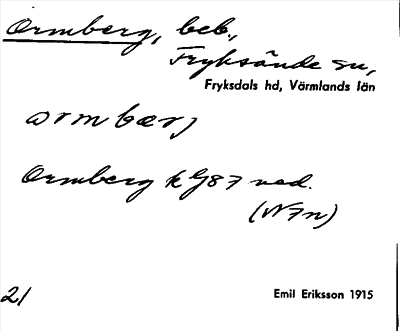 Ormberg, beb.,
Fryksände sn,
Fryksdals hd, Värmlands län
ormbærj
Ormberg k
(N Fn)
21
Emil Eriksson 1915